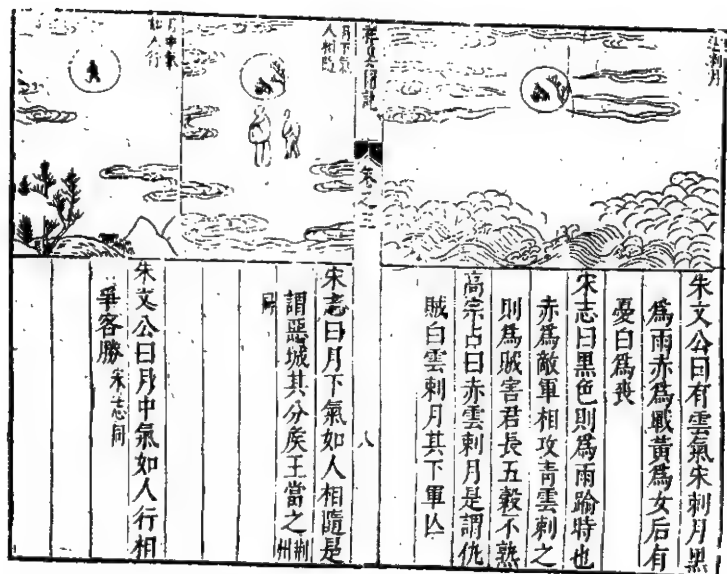 刺月
朱文公曰有雲氣宋刺月黑
為雨赤為戰黃為女后有
憂白為喪
宋志曰黑色則為雨踰時也
赤為敵軍相攻青雲刺之
則為賊害君長五穀不熟
高宗占曰赤雲刺月是謂仇
賊白雲刺月其下軍亾
卷之三
八
月下氣
人相隨
宋志曰月下氣如人相隨是
謂惡城其分矦王當之 荆州
同
月中氣
如人行
朱文公曰月中氣如人行相
爭客勝 宋志同